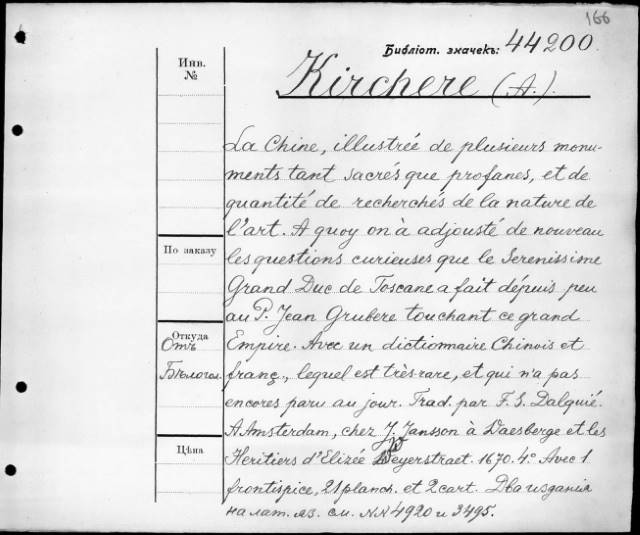 166
Библіот. значекъ: 44200.
Инв.
№
Kirchere (A.).
La Chine, illustrée de plusieurs monu-
ments tant sacrés que profanes, et de
quantité de recherchés de la nature de
l'art. A quoy on à adjousté de nouveau
По заказу
les questions curieuses que le Serenissime
Grand Duc de Toscane a fait dépuis peu
au P. Jean Grubere touchant ce grand
Откуда
Отъ
Empire. Avec un dictionnaire Chinois et
Бѣлогол.
franç., lequel est très-rare, et qui n'a pas
encores paru au jour. Trad. par F. S. Dalquié.
A Amsterdam, chez J. Jansson à Waesberge et les
Цѣна
Heritiers d'Elizée Weyerstraet. 1670. 4º Avec 1
frontispice, 21 planch. et 2 cart. Два изданія
на лат. яз. см. NN 4920 и 3495.